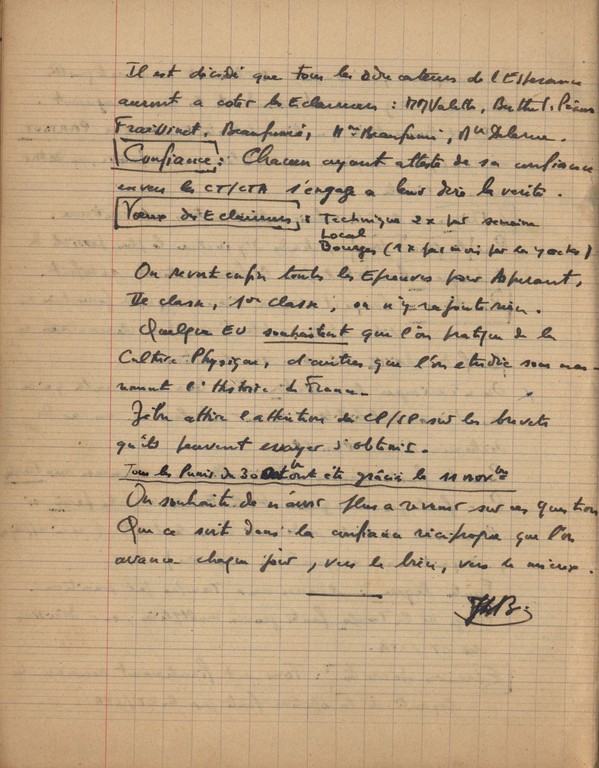 Il est décidé que tous les éducateurs de l'Esperance
auront a coter les Eclaireurs : MM Valette, Berthel,
Fraivinet, Beaufumé, Mme Beaufumé, Mlle
Confiance : Chacun ayant attesté de sa confiance
envers les CT/CTA s'engage a leur dire la verité.
Voeux des Eclaireurs : Technique 2 x par semaine
Local
Bourges (1 x par mois par les )
On revoit enfin toutes les Epreuves pour Aspirant,
IIe classe, 1ère classe, on n'y rajoute rien.
Quelques EU souhaitent que l'on pratique de la
Culture Physique, d'autres que l'on etudie sous mes-
l'Histoire de France.
attire l'attention des CP/SP sur les brevets
qu'ils peuvent essayer d'obtenir.
Tous les Punis du 30 ont été graciés le 11 novbre
On souhaite de n'avoir plus a revenir sur ces questions
Que ce soit dans la confiance réciproque que l'on
avance chaque jour, vers le bien, vers le mieux.